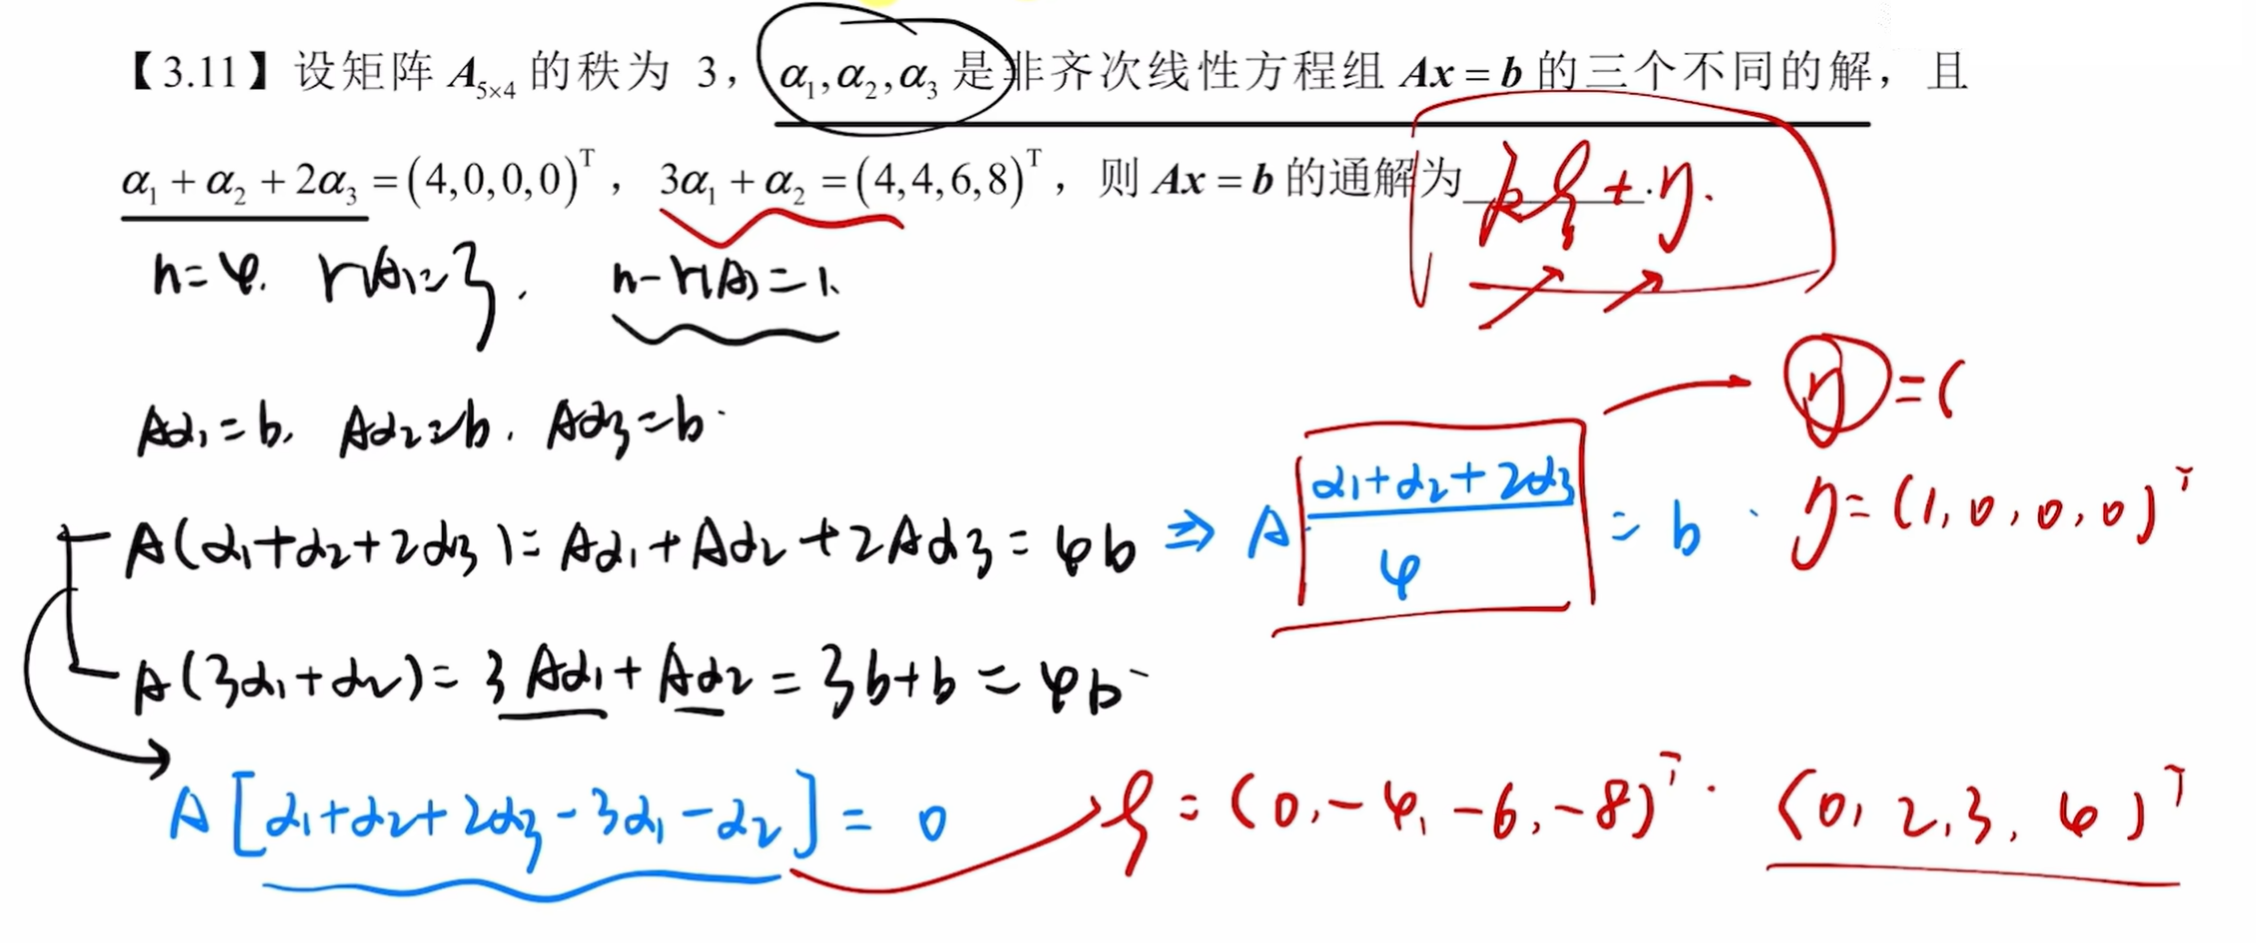 【3.11】设矩阵 A₅ₓ₄ 的秩为 3，α₁,α₂,α₃ 是非齐次线性方程组 Ax = b 的三个不同的解，且
α₁ + α₂ + 2α₃ = (4,0,0,0)ᵀ，3α₁ + α₂ = (4,4,6,8)ᵀ，则 Ax = b 的通解为________.
kξ + η.
n=4. r(A)=3. n-r(A)=1.
η = (
Aα₁=b. Aα₂=b. Aα₃=b.
A(α₁+α₂+2α₃)=Aα₁+Aα₂+2Aα₃=4b ⇒ A (α₁+α₂+2α₃)/4 = b. η=(1,0,0,0)ᵀ
A(3α₁+α₂)=3Aα₁+Aα₂=3b+b=4b
A[α₁+α₂+2α₃-3α₁-α₂]=0 ξ=(0,-4,-6,-8)ᵀ. (0,2,3,4)ᵀ